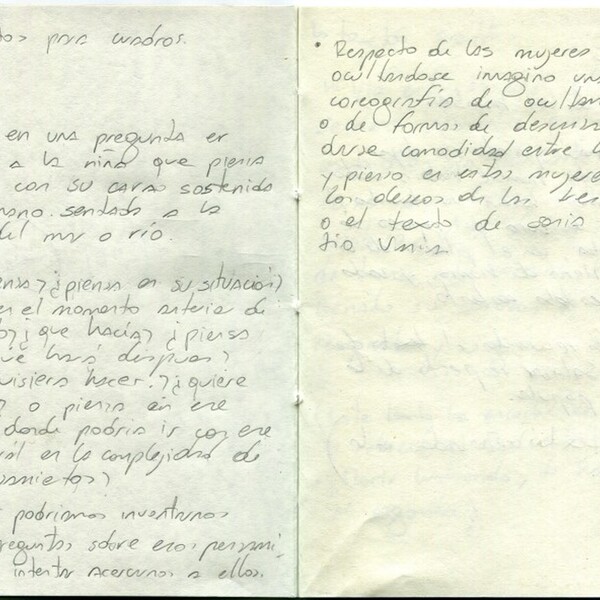 para cuadros.
en una pregunta en
a la niña que piensa
con su cara sostenida
mano. sentada a la
del mar o río.
¿piensa en su situación?
en el momento anterior de
¿que hacía? ¿piensa
que hará despues?
quisiera hacer? ¿quiere
o piensa en ese
donde podría ir con ese
en la complejidad de
podríamos inventarnos
preguntas sobre esos personi-
intentar acercarnos a ellos.
• Respecto de las mujeres
ocultandose imagino una
coreografía de ocultam
o de formas de descans
darse comodidad entre
y pienso en estas mujeres
los deseos de las
o el texto de sonia
tío Vania